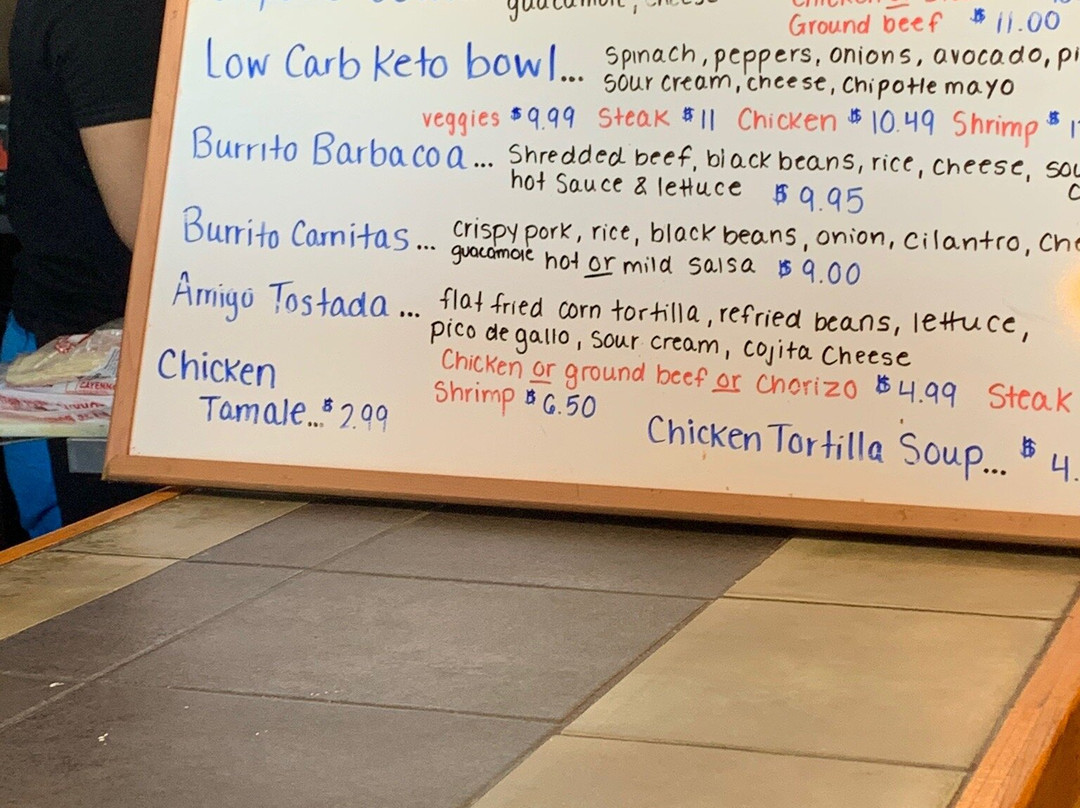 Ground beef $11.00
Low Carb Keto bowl... Spinach, peppers, onions, avocado,
sour cream, cheese, Chipotle mayo
veggies $9.99 Steak $11 Chicken $10.49 Shrimp $
Burrito Barbacoa... Shredded beef, black beans, rice, cheese,
hot Sauce & lettuce $9.95
Burrito Carnitas... crispy pork, rice, black beans, onion, cilantro,
guacamole hot or mild salsa $9.00
Amigo Tostada... flat fried corn tortilla, refried beans, lettuce,
pico de gallo, sour cream, cojita Cheese
Chicken or ground beef or Chorizo $4.99 Steak
Shrimp $6.50
Chicken
Tamale... $2.99
Chicken Tortilla Soup... $4.